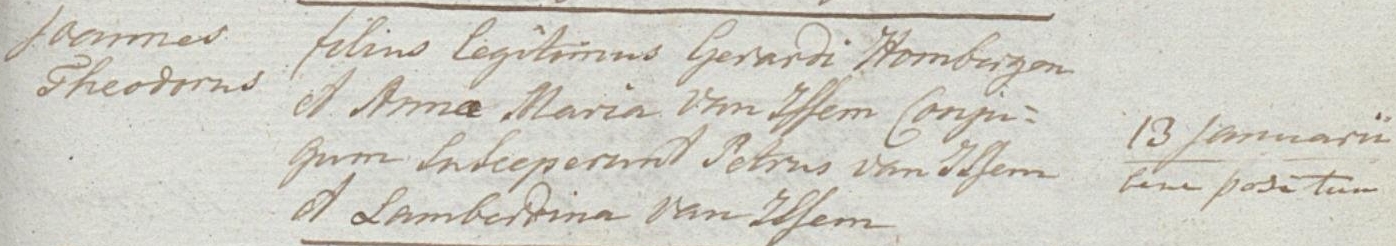 Joannes
Theodorus
filius legitimus Gerardi Hombergen
et Anna Maria Van Issem Conju=
gum Susceperunt Petrus van Issem
et Lamberdina Van Issem
13 Januarii
bene positum